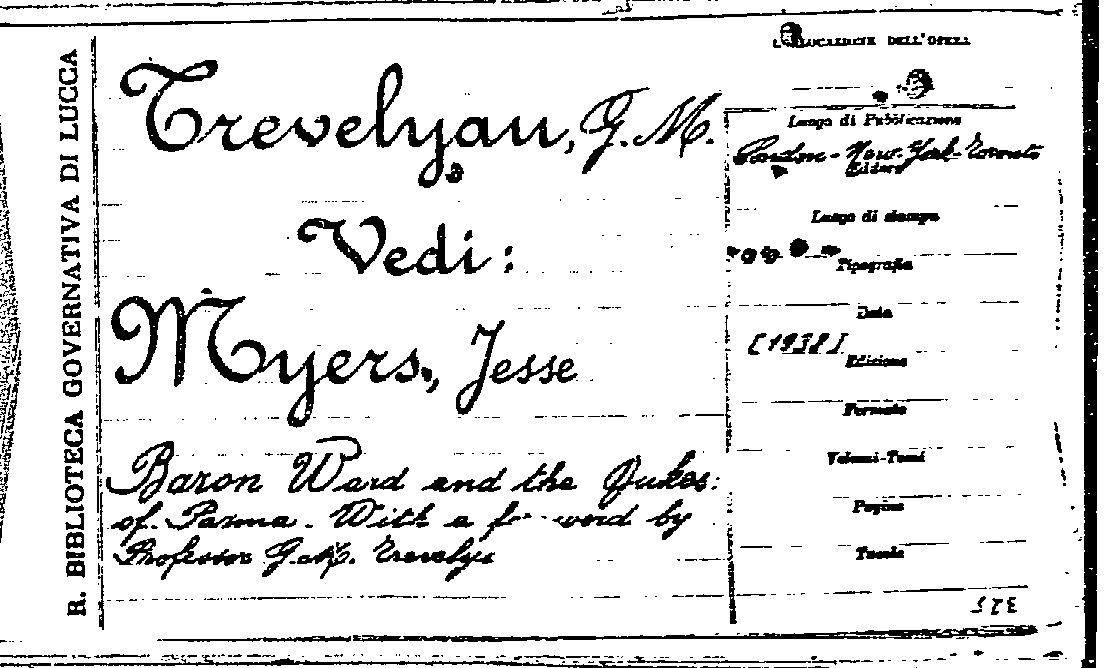 R. BIBLIOTECA GOVERNATIVA DI LUCCA
Trevelyan, G. M.
Vedi:
Myers, Jesse
Baron Ward and the Dukes
of Parma. With a foreword by
Professor G. M. Trevelyan
COLLOCAZIONE DELL'OPERA
Luogo di Pubblicazione
London - New-York - Toronto
Editore
Luogo di stampa
Tipografia
Data
[1938]
Edizione
Formato
Volumi-Tomi
Pagine
Tavole